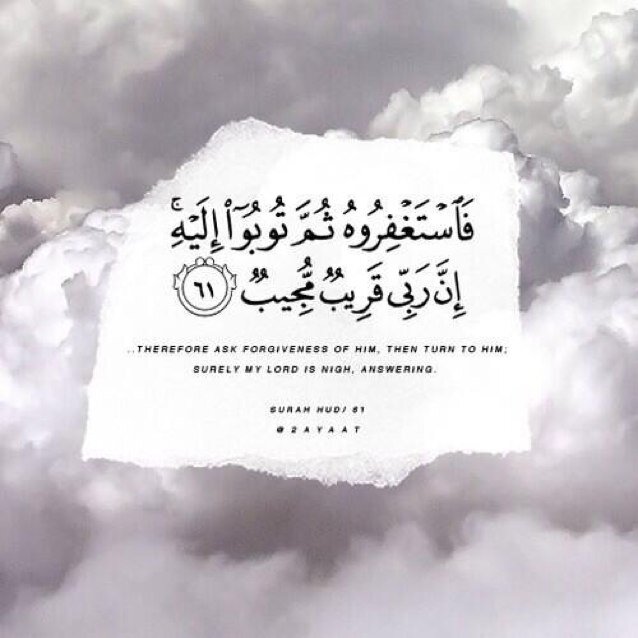 فَٱسۡتَغۡفِرُوهُ ثُمَّ تُوبُوٓاْ إِلَيۡهِۚ
إِنَّ رَبِّي قَرِيبٞ مُّجِيبٞ ٦١
..THEREFORE ASK FORGIVENESS OF HIM, THEN TURN TO HIM;
SURELY MY LORD IS NIGH, ANSWERING.
SURAH HUD/ 61
@2AYAAT